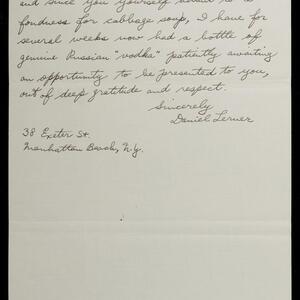 and since you yourself admit to a
fondness for cabbage soup, I have for
several weeks now had a bottle of
genuine Russian "vodka" patiently awaiting
an opportunity to be presented to you,
out of deep gratitude and respect.
Sincerely
Daniel Lerner
38 Exeter St.
Manhattan Beach, N.Y.